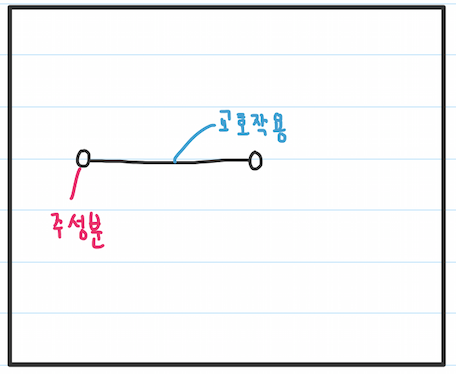 교호작용
주성분